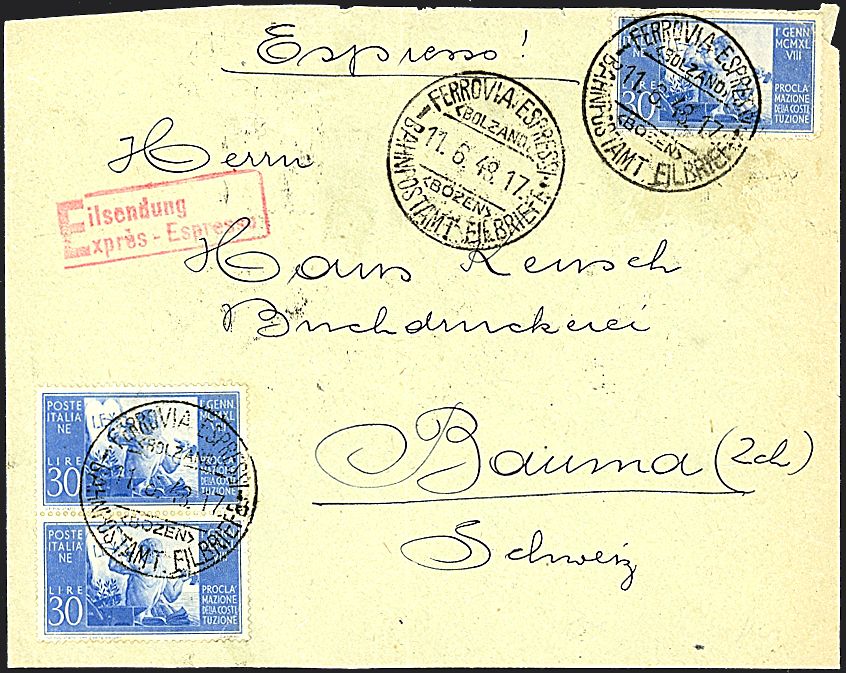 Espresso!
I GENN.
MCMXL
VIII
30
PROCLA
MAZIONE
DELLA COSTI
TUZIONE
FERROVIA ESPRESSI
<BOLZANO>
11.6.48.17
<BOZEN>
BAHNPOSTAMT EILBRIEFE
FERROVIA ESPRESSI
<BOLZANO>
11.6.48.17
<BOZEN>
BAHNPOSTAMT EILBRIEFE
Herrn
Eilsendung
Exprès - Espresso
Hans
Buchdruckerei
Bauma (Zch)
Schweiz
POSTE
ITALIA
NE
I GENN.
MCMXL
LIRE
30
TUZIONE
FERROVIA ESPRESSI
<BOLZANO>
11.6.48.17
<BOZEN>
BAHNPOSTAMT EILBRIEFE
POSTE
ITALIA
NE
LIRE
30
PROCLA
MAZIONE
DELLA COSTI
TUZIONE